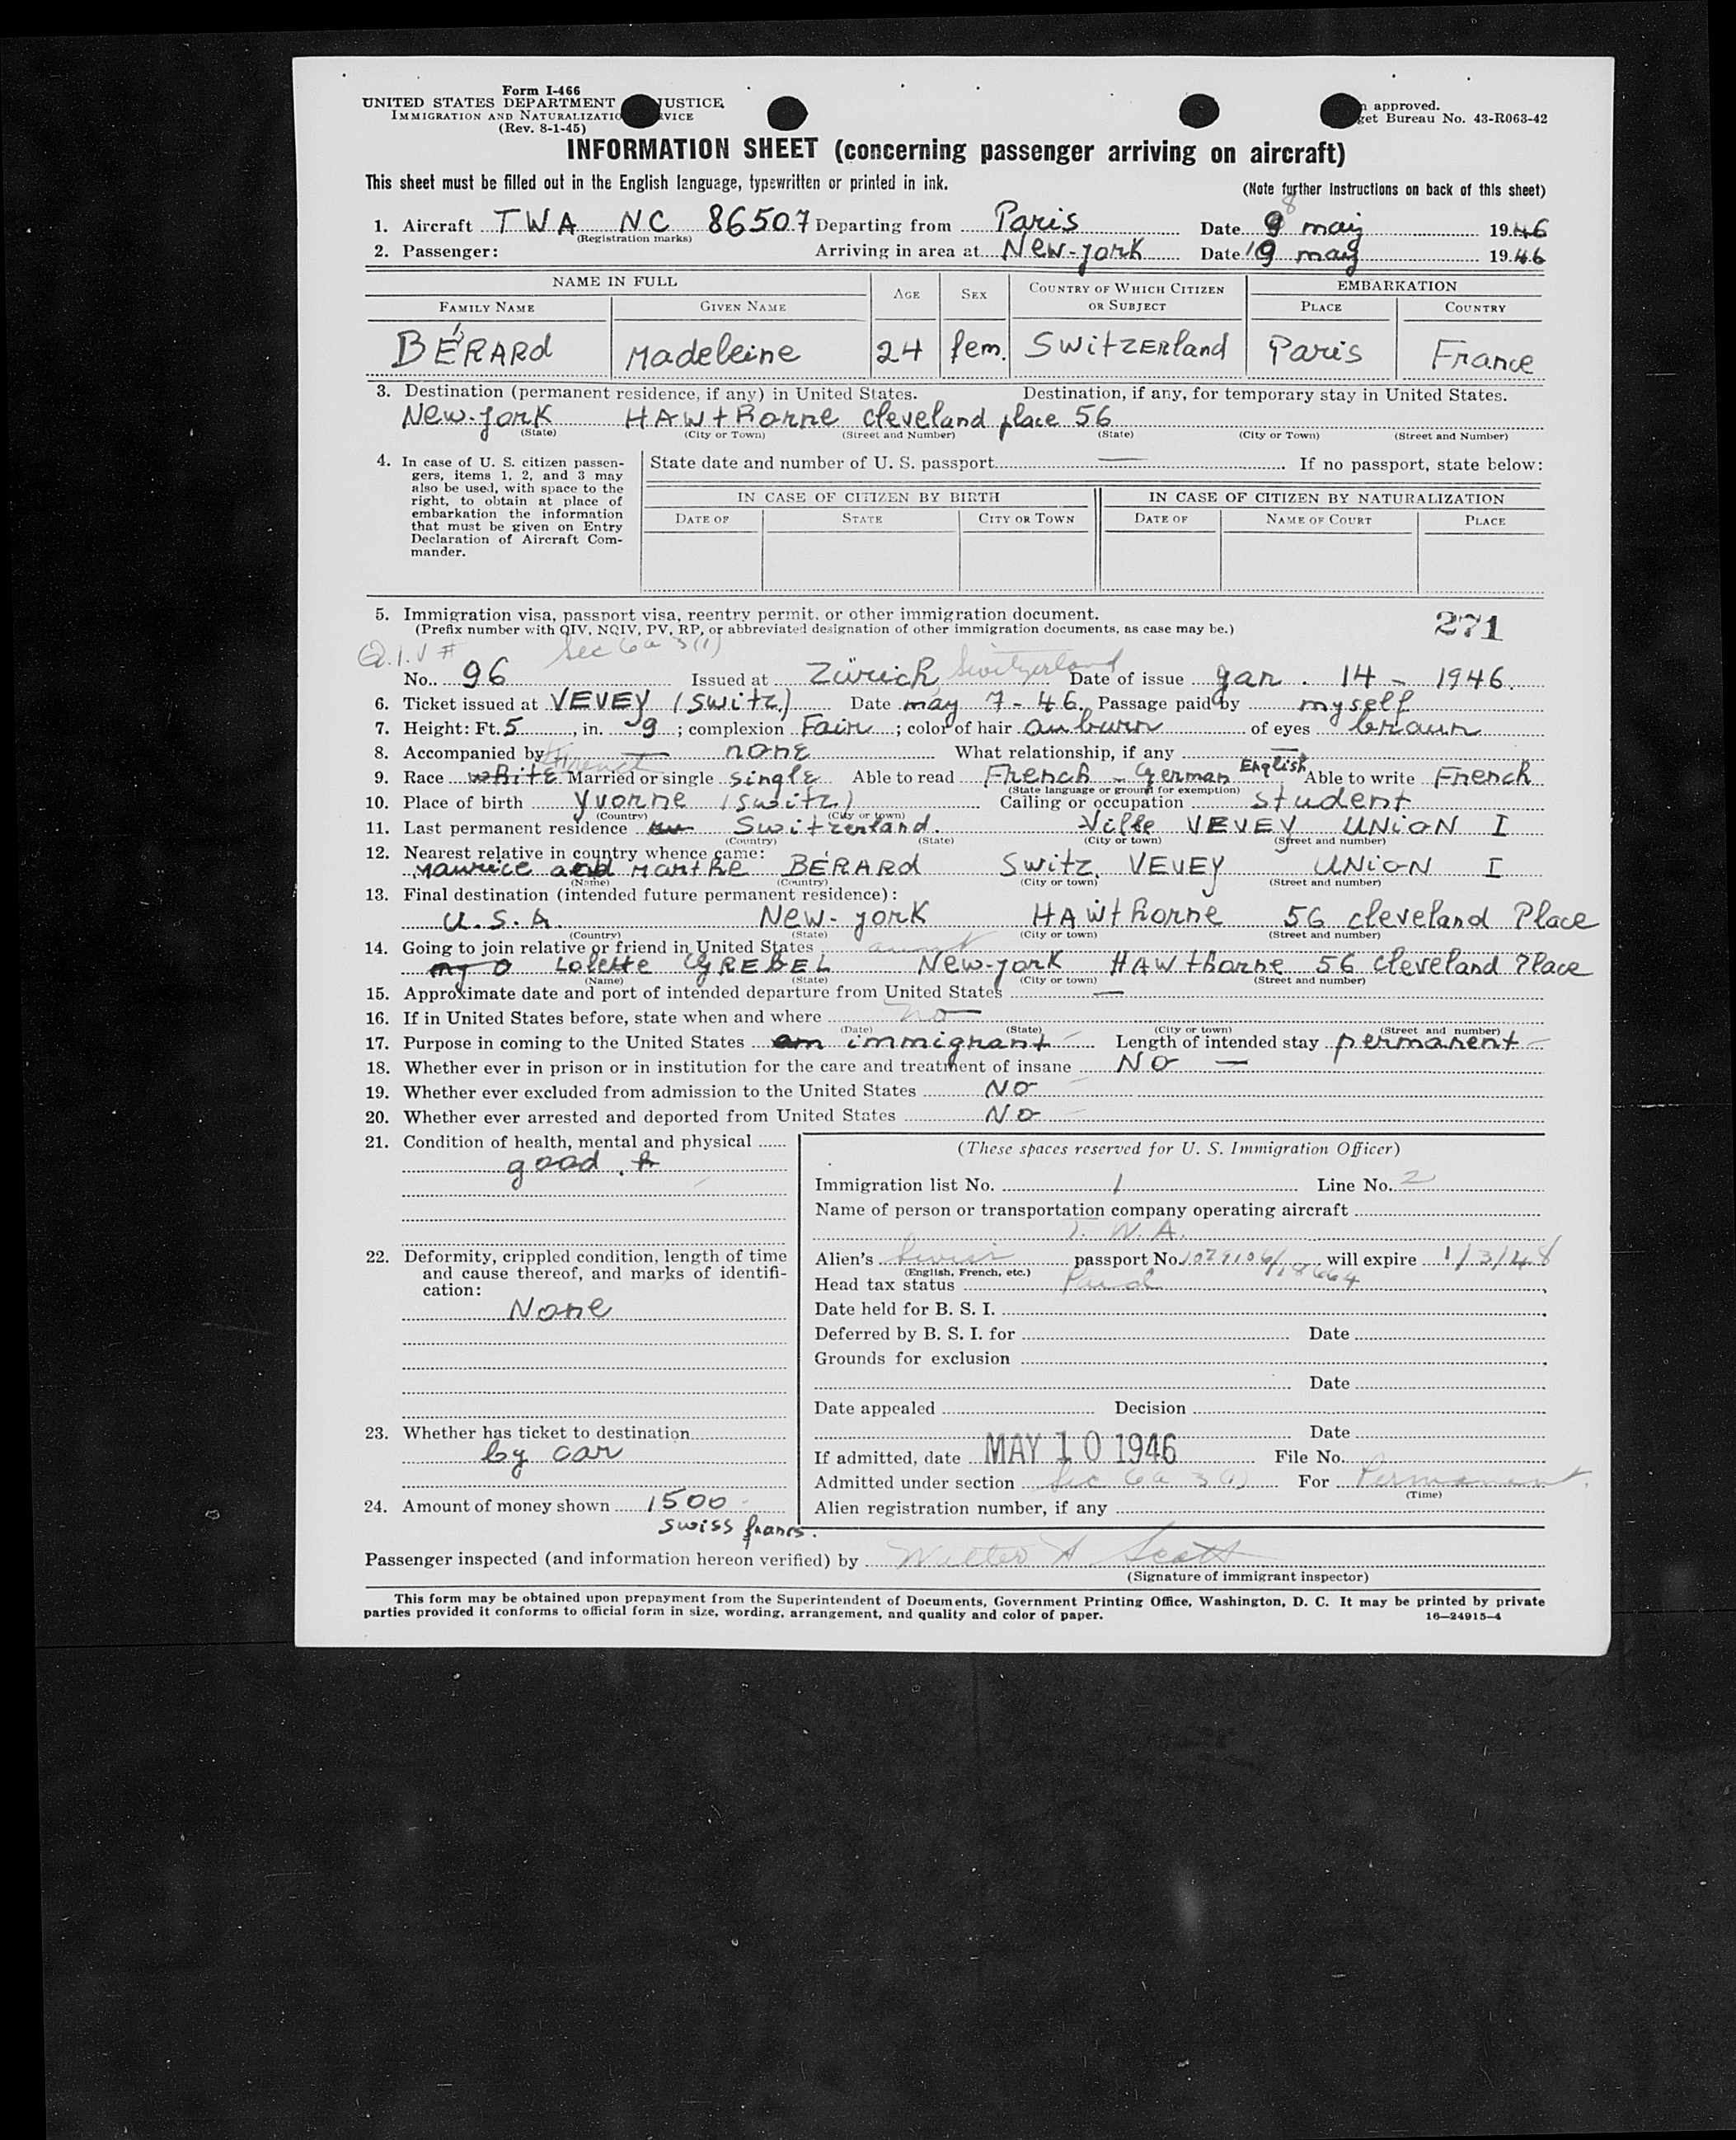 Form I-466
UNITED STATES DEPARTMENT JUSTICE
IMMIGRATION AND NATURALIZATIO VICE
(Rev. 8-1-45)
approved.
get Bureau No. 43-R063-42
INFORMATION SHEET (concerning passenger arriving on aircraft)
This sheet must be filled out in the English language, typewritten or printed in ink.
(Note further instructions on back of this sheet)
8
1. Aircraft TWA NC 86507 Departing from Paris Date 9 may 1946
(Registration marks)
2. Passenger: Arriving in area at New-york Date 9 may 1946
NAME IN FULL AGE SEX COUNTRY OF WHICH CITIZEN OR SUBJECT EMBARKATION
FAMILY NAME GIVEN NAME PLACE COUNTRY
BÉRARD Madeleine 24 fem. Switzerland Paris France
3. Destination (permanent residence, if any) in United States. Destination, if any, for temporary stay in United States.
New-york HAWthorne cleveland place 56
(State) (City or Town) (Street and Number) (State) (City or Town) (Street and Number)
4. In case of U. S. citizen passen-
gers, items 1, 2, and 3 may
also be used, with space to the
right, to obtain at place of
embarkation the information
that must be given on Entry
Declaration of Aircraft Com-
mander.
State date and number of U. S. passport — If no passport, state below:
IN CASE OF CITIZEN BY BIRTH IN CASE OF CITIZEN BY NATURALIZATION
DATE OF STATE CITY OR TOWN DATE OF NAME OF COURT PLACE
5. Immigration visa, passport visa, reentry permit, or other immigration document.
(Prefix number with QIV, NQIV, PV, RP, or abbreviated designation of other immigration documents, as case may be.)
271
Q.I.V # Sec 6a 3(1)
No. 96 Issued at Zürich, Switzerland Date of issue Jan. 14 - 1946.
6. Ticket issued at VEVEY (Switz.) Date may 7-46. Passage paid by myself
7. Height: Ft. 5, in. 9; complexion Fair; color of hair auburn of eyes braun
8. Accompanied by — none What relationship, if any —
French
9. Race white Married or single single Able to read French - German English Able to write French
(State language or ground for exemption)
10. Place of birth Yvorne (Switz) Calling or occupation student
(Country) (City or town)
11. Last permanent residence Switzerland. Ville VEVEY UNION I
(Country) (State) (City or town) (Street and number)
12. Nearest relative in country whence came:
Maurice and Marthe BÉRARD Switz. VEVEY UNION I
(Name) (Country) (City or town) (Street and number)
13. Final destination (intended future permanent residence):
U.S.A. New-york HAWthorne 56 cleveland Place
(Country) (State) (City or town) (Street and number)
14. Going to join relative or friend in United States aunt
my Lolette GREBEL New-york HAWthorne 56 cleveland Place
(Name) (State) (City or town) (Street and number)
15. Approximate date and port of intended departure from United States —
16. If in United States before, state when and where no
(Date) (State) (City or town) (Street and number)
17. Purpose in coming to the United States am immigrant Length of intended stay permanent
18. Whether ever in prison or in institution for the care and treatment of insane NO —
19. Whether ever excluded from admission to the United States NO
20. Whether ever arrested and deported from United States NO
21. Condition of health, mental and physical
good.
22. Deformity, crippled condition, length of time
and cause thereof, and marks of identifi-
cation:
None
23. Whether has ticket to destination
by car
24. Amount of money shown 1500
swiss francs.
(These spaces reserved for U. S. Immigration Officer)
Immigration list No. 1 Line No. 2
Name of person or transportation company operating aircraft
T. W. A.
Alien's Swiss passport No. 1029106/18664 will expire 1/3/48
(English, French, etc.)
Head tax status Paid
Date held for B. S. I.
Deferred by B. S. I. for Date
Grounds for exclusion
Date
Date appealed Decision
Date
If admitted, date MAY 10 1946 File No.
Admitted under section Sec 6a 3(1) For Permanent
(Time)
Alien registration number, if any
Passenger inspected (and information hereon verified) by Walter A Scott
(Signature of immigrant inspector)
This form may be obtained upon prepayment from the Superintendent of Documents, Government Printing Office, Washington, D. C. It may be printed by private
parties provided it conforms to official form in size, wording, arrangement, and quality and color of paper.
16—24915-4